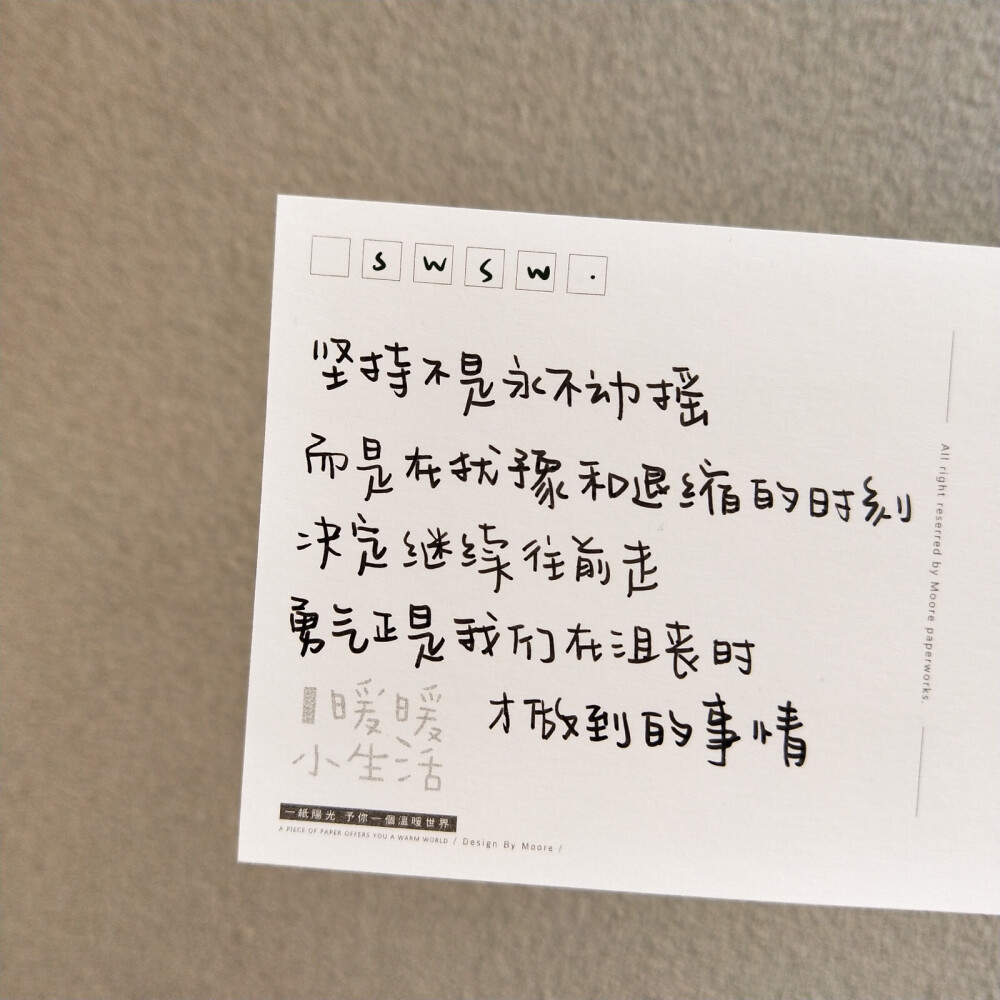 S W S W .
坚持不是永不动摇
而是在犹豫和退缩的时刻
决定继续往前走
勇气正是我们在沮丧时
才做到的事情
暖暖
小生活
一紙陽光 予你一個溫暖世界
A PIECE OF PAPER OFFERS YOU A WARM WORLD / Design By Moore /
All right reserred by Moore paperworks.